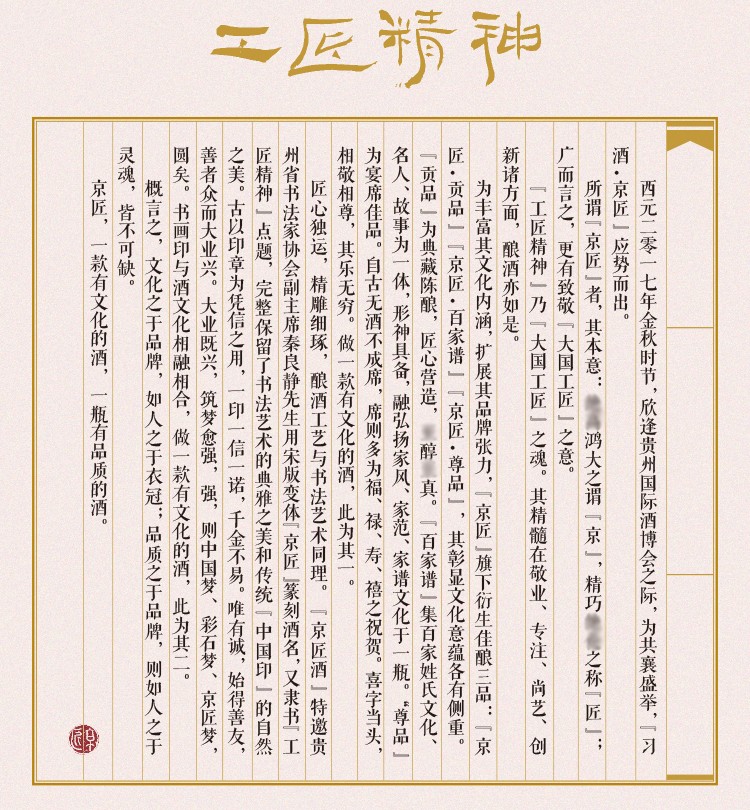 工匠精神
西元二零一七年金秋时节，欣逢贵州国际酒博会之际，为共襄盛举，『习
酒·京匠』应势而出。
所谓『京匠』者，其本意：鸿大之谓『京』，精巧之称『匠』；
广而言之，更有致敬『大国工匠』之意。
『工匠精神』乃『大国工匠』之魂。其精髓在敬业、专注、尚艺、创
新诸方面，酿酒亦如是。
为丰富其文化内涵，扩展其品牌张力，『京匠』旗下衍生佳酿三品：『京
匠·贡品』『京匠·百家谱』『京匠·尊品』，其彰显文化意蕴各有侧重。
『贡品』为典藏陈酿，匠心营造，醇真。『百家谱』集百家姓氏文化、
名人、故事为一体，形神具备，融弘扬家风、家范、家谱文化于一瓶。『尊品』
为宴席佳品。自古无酒不成席，席则多为福、禄、寿、禧之祝贺。喜字当头，
相敬相尊，其乐无穷。做一款有文化的酒，此为其一。
匠心独运，精雕细琢，酿酒工艺与书法艺术同理。『京匠酒』特邀贵
州省书法家协会副主席秦良静先生用宋版变体『京匠』篆刻酒名，又隶书『工
匠精神』点题，完整保留了书法艺术的典雅之美和传统『中国印』的自然
之美。古以印章为凭信之用，一印一信一诺，千金不易。唯有诚，始得善友，
善者众而大业兴。大业既兴，筑梦愈强，强，则中国梦、彩石梦、京匠梦，
圆矣。书画印与酒文化相融相合，做一款有文化的酒，此为其二。
概言之，文化之于品牌，如人之于衣冠；品质之于品牌，则如人之于
灵魂，皆不可缺。
京匠，一款有文化的酒，一瓶有品质的酒。
京匠